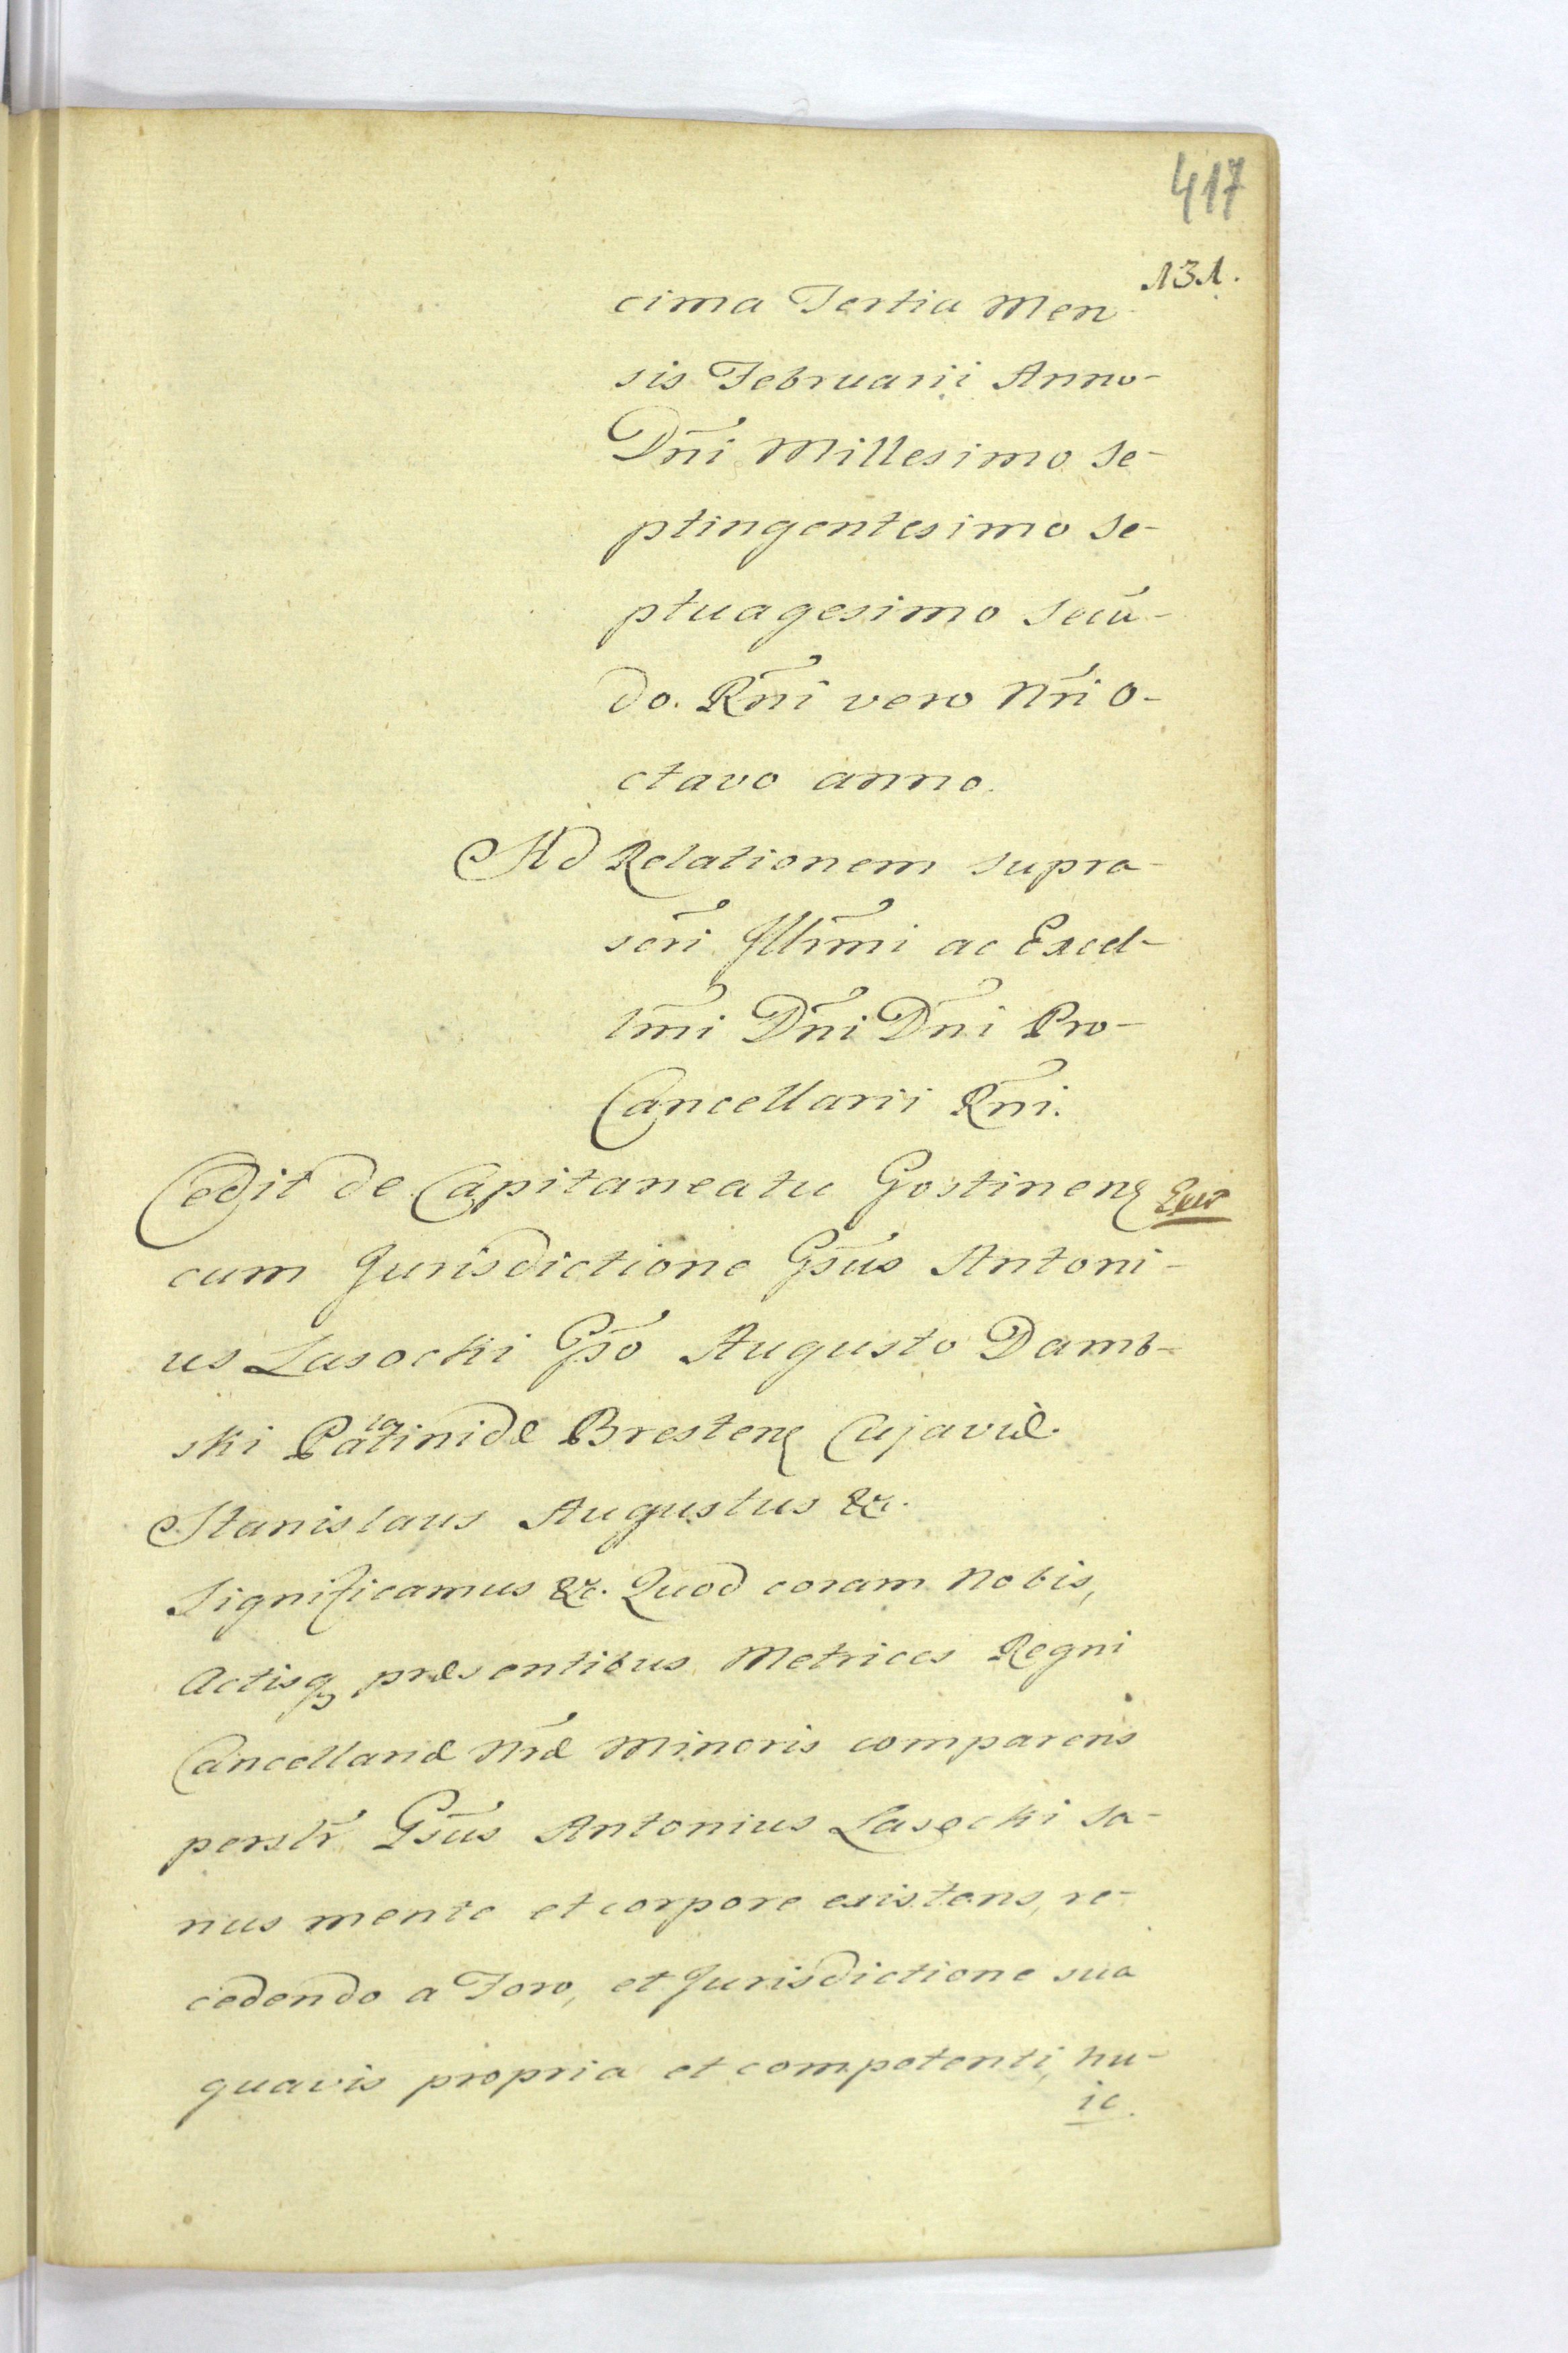 417
131.
cima Tertia Men-
sis Februarii Anno-
Dn̄i Millesimo Se-
ptingentesimo Se-
ptuagesimo Secū-
do. Rn̄i vero Nr̄i O-
ctavo anno.
Ad Relationem supra-
scri Illr̄mi ac Excel-
lm̄i Dn̄i Dn̄i Pro-
Cancellarii Rn̄i.
Cedit de Capitaneatu Gostinens
cum Jurisdictione Gs̄us Antoni-
us Lasocki Gs̄o Augusto Damb-
ski Palatinidæ Brestens Cujaviæ.
Stanislaus Augustus &c.
Significamus &c. Quod coram Nobis,
Actisq3 præsentibus Metrices Regni
Cancellariæ Nr̄æ Minoris comparens
persl̄r Gs̄us Antonius Lasocki sa-
nus mente et corpore existens, re-
cedendo a Foro, et Jurisdictione sua
quavis propria et competenti, hu-
ic